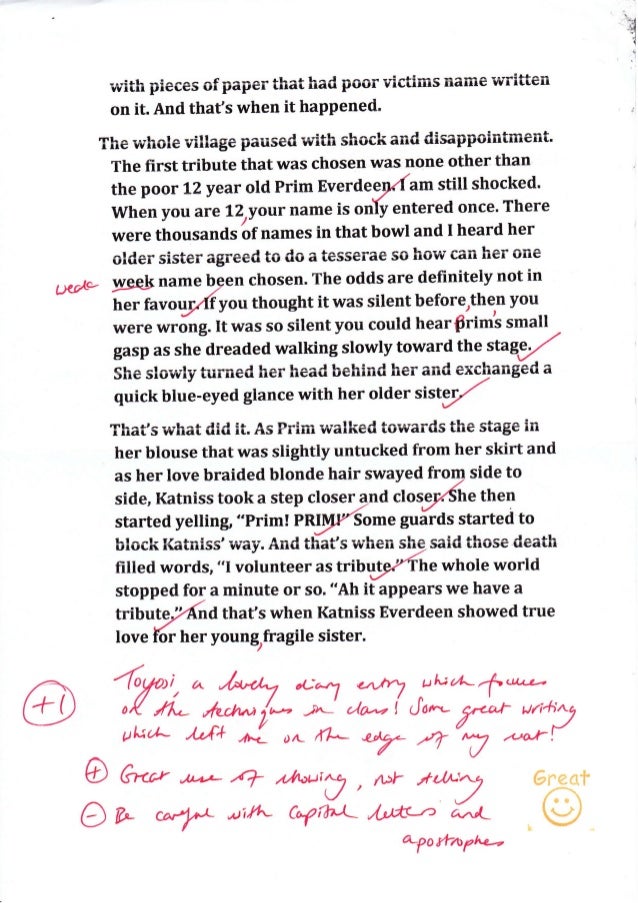 with pieces of paper that had poor victims name written
on it. And that's when it happened.
The whole village paused with shock and disappointment.
The first tribute that was chosen was none other than
the poor 12 year old Prim Everdeen. I am still shocked.
When you are 12, your name is only entered once. There
were thousands of names in that bowl and I heard her
older sister agreed to do a tesserae so how can her one
weak week name been chosen. The odds are definitely not in
her favour. If you thought it was silent before, then you
were wrong. It was so silent you could hear Prim's small
gasp as she dreaded walking slowly toward the stage.
She slowly turned her head behind her and exchanged a
quick blue-eyed glance with her older sister.
That's what did it. As Prim walked towards the stage in
her blouse that was slightly untucked from her skirt and
as her love braided blonde hair swayed from side to
side, Katniss took a step closer and closer. She then
started yelling, "Prim! PRIM!" Some guards started to
block Katniss' way. And that's when she said those death
filled words, "I volunteer as tribute." The whole world
stopped for a minute or so. "Ah it appears we have a
tribute." And that's when Katniss Everdeen showed true
love for her young, fragile sister.
+1 Toyosi, a lovely diary entry which focuses
on the techniques in class! Some great writing
which left me on the edge of my seat!
+ Great use of showing, not telling
Great
- Be careful with Capital letters and
apostrophes